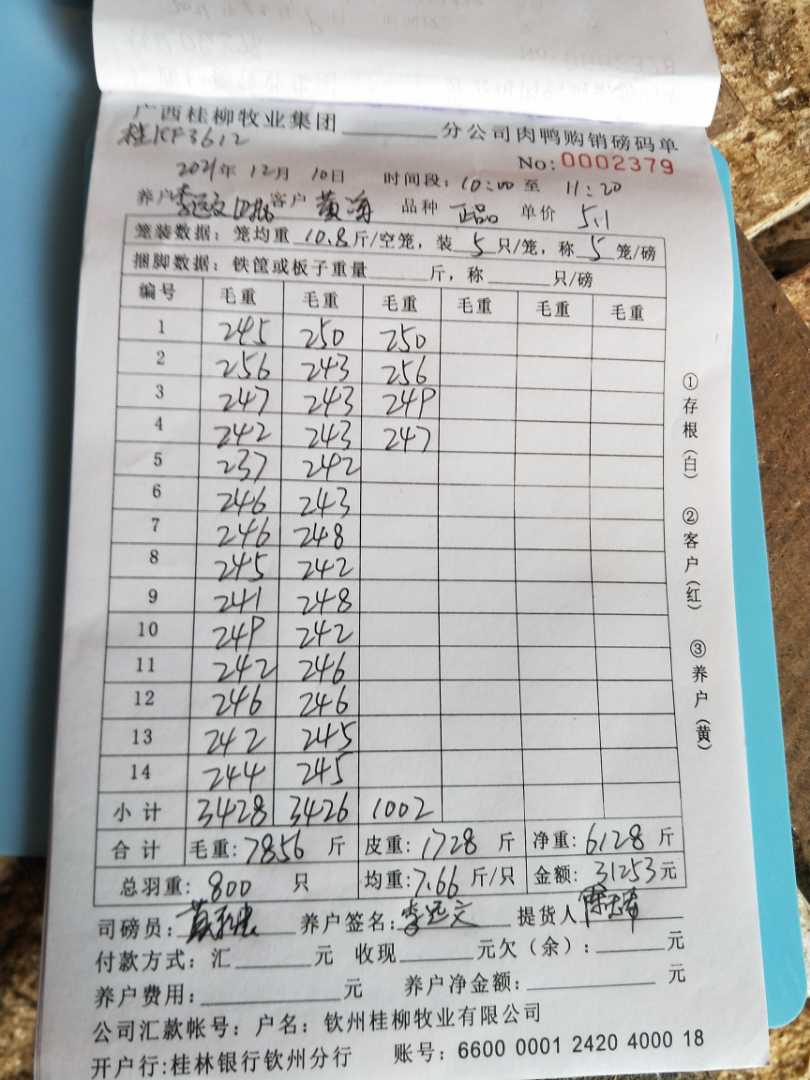 广西桂柳牧业集团________分公司肉鸭购销磅码单
桂KF3612
No:0002379
2021年 12月 10日 时间段:10:00 至 11:20
养户 李远文 客户 黄海 品种 正品 单价 5.1
笼装数据：笼均重 10.8 斤/空笼，装 5 只/笼，称 5 笼/磅
捆脚数据：铁筐或板子重量______斤，称______只/磅
编号 毛重 毛重 毛重 毛重 毛重 毛重
1 245 250 250
2 256 243 256
3 247 243 249
4 242 243 247
5 237 242
6 246 243
7 246 248
8 245 242
9 241 248
10 249 242
11 242 246
12 246 246
13 242 245
14 244 245
小计 3428 3426 1002
合计 毛重:7856 斤 皮重:1728 斤 净重:6128 斤
总羽重:800 只 均重:7.66 斤/只 金额:31253元
司磅员: 养户签名:李远文 提货人
付款方式：汇______元 收现______元欠（余）:______元
养户费用:____________元 养户净金额:____________元
公司汇款帐号：户名：钦州桂柳牧业有限公司
开户行:桂林银行钦州分行 账号：6600 0001 2420 4000 18
①存根(白) ②客户(红) ③养户(黄)